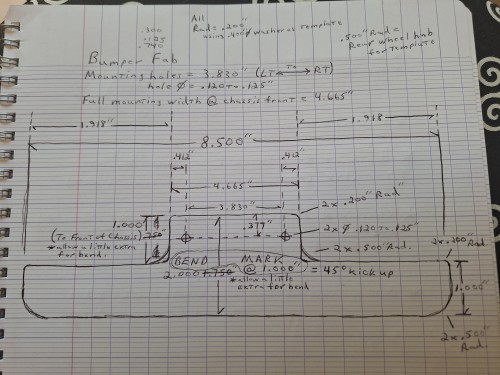 .300
.125
.740
All
Rad = .200"
using .400 Ø washer as template
.500" Rad =
Rear wheel hub
for template
Bumper Fab
Mounting holes = 3.830" (LT To RT)
hole Ø = .120 To .125"
Full mounting width @ chassis front = 4.665"
1.918"
1.918"
8.500"
.412"
.412"
4.665"
3.830"
2x .200" Rad
1.000"
.377"
(To Front of Chassis) .750"
2x Ø .120 To .125"
* allow a little extra
for bend.
2x .500" Rad.
2x .200" Rad
BEND MARK
2.000 1.750" @ 1.000" = 45° kick up
* allow a little
extra for bend
1.000"
2x .500"
Rad.